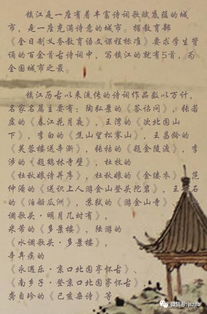 镇江是一座有着丰富诗词歌赋底蕴的城
市，是一座充满诗意的城市。据教育部
《全日制义务教育语文课程标准》要求学生背
诵的百余首古诗词中，写镇江的就有5首，为
全国城市之最。
镇江历古以来流传的诗词作品数以万计，
名家名篇主要有：陶弘景的《答诏问》，张若
虚的《春江花月夜》，王湾的《次北固山
下》，李白的《焦山望松寥山》，王昌龄的
《芙蓉楼送辛渐》，张祜的《题金陵渡》，李
涉的《题鹤林寺壁》，杜牧的
《杜秋娘诗并序》，杜秋娘的《金缕衣》，范
仲淹的《送识上人游金山登头陀岩》，王安石
的《泊船瓜洲》，苏轼的《游金山寺》
《水调歌头·多景楼》，
辛弃疾的
《永遇乐·京口北固亭怀古》、
《南乡子·登京口北固亭怀古》
龚自珍的《己亥杂诗》等